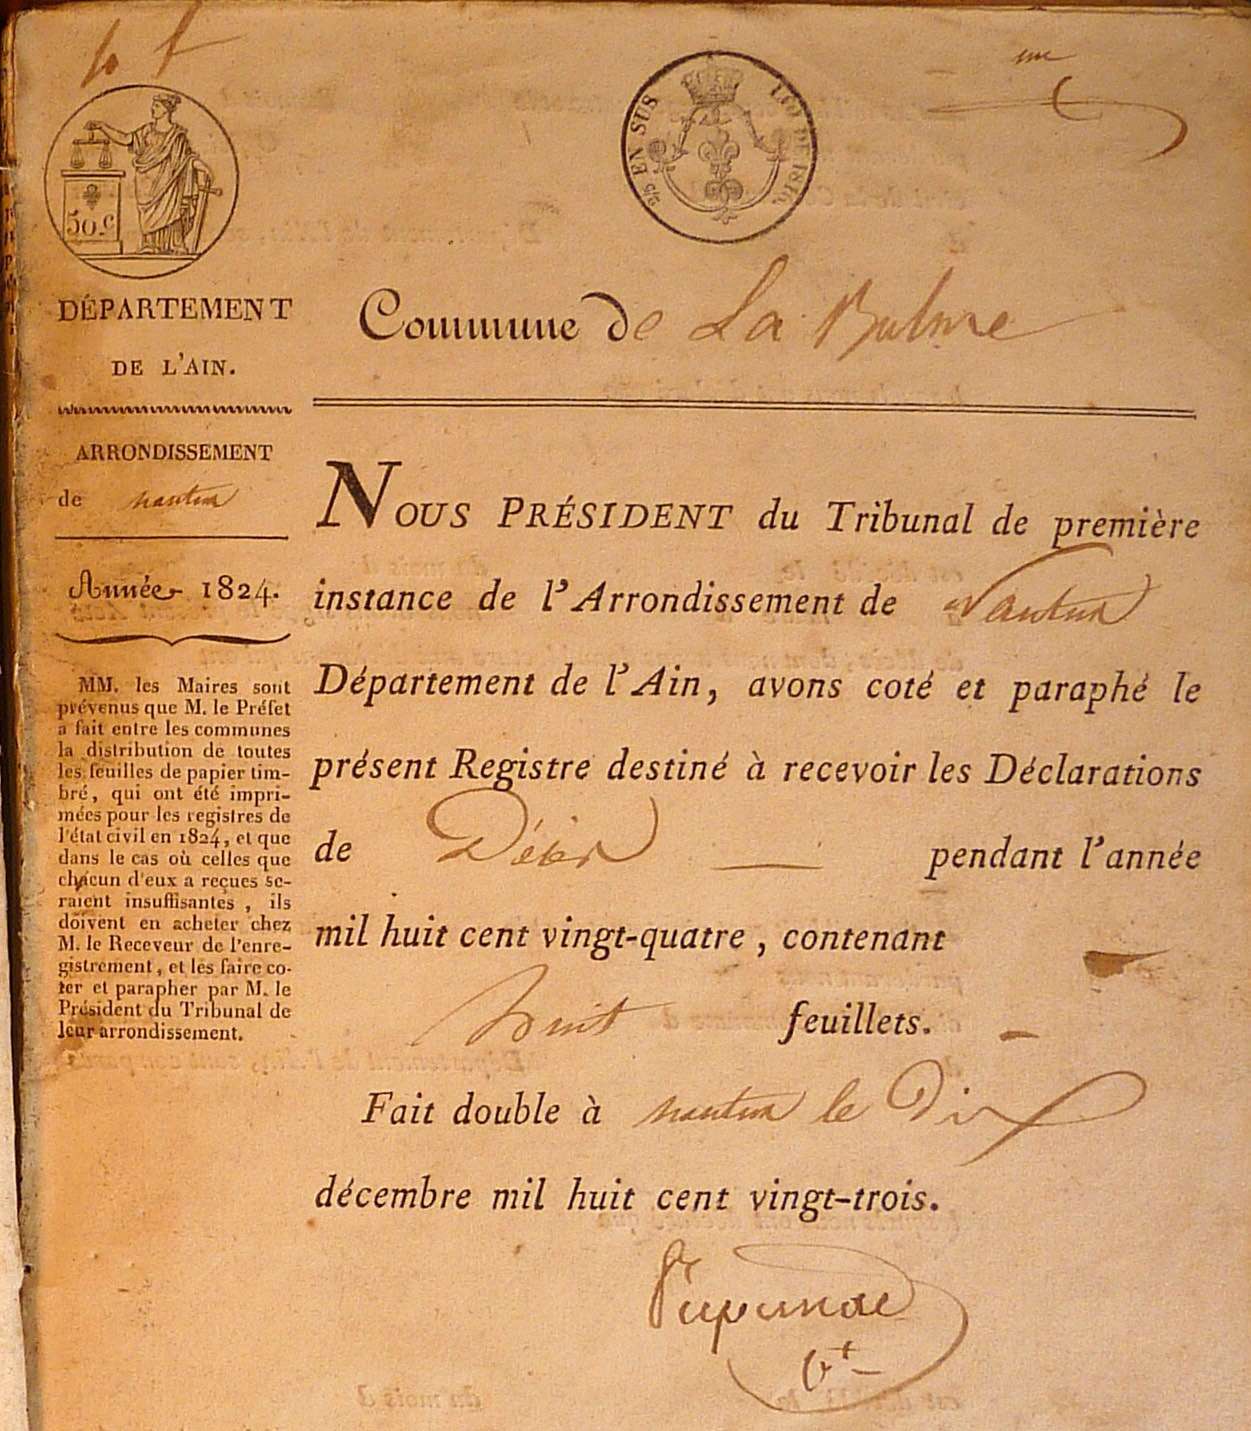 50.c
EN SUS
DE 1816.
DÉPARTEMENT
DE L'AIN.
ARRONDISSEMENT
de nantua
Année 1824.
MM. les Maires sont
prévenus que M. le Préfet
a fait entre les communes
la distribution de toutes
les feuilles de papier tim-
bré, qui ont été impri-
mées pour les registres de
l'état civil en 1824, et que
dans le cas où celles que
chacun d'eux a reçues se-
raient insuffisantes, ils
doivent en acheter chez
M. le Receveur de l'enre-
gistrement, et les faire co-
ter et parapher par M. le
Président du Tribunal de
leur arrondissement.
Commune de La Balme
NOUS PRÉSIDENT du Tribunal de première
instance de l'Arrondissement de Nantua
Département de l'Ain, avons coté et paraphé le
présent Registre destiné à recevoir les Déclarations
de Décès pendant l'année
mil huit cent vingt-quatre, contenant
huit feuillets.
Fait double à nantua le Dix
décembre mil huit cent vingt-trois.